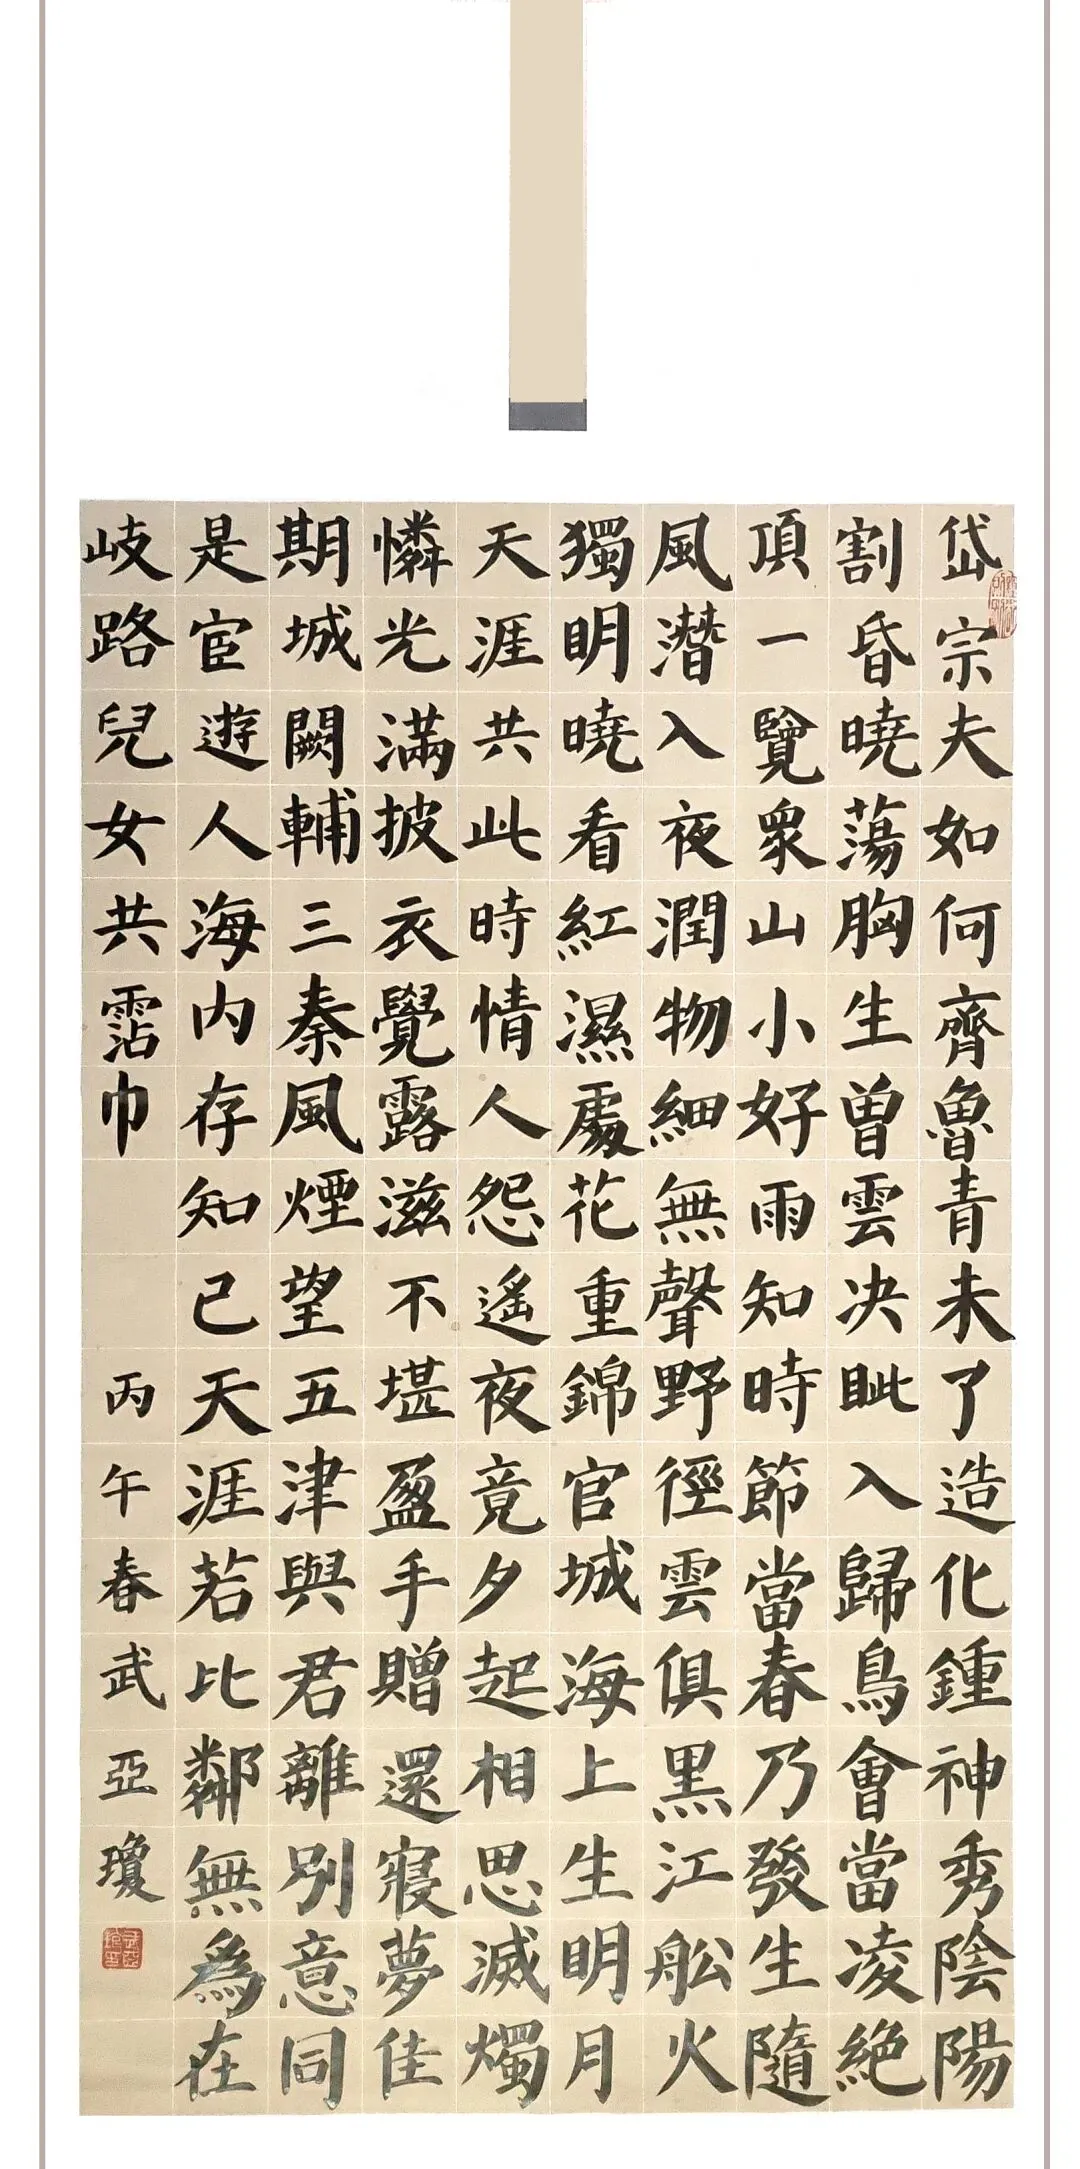 岱宗夫如何齊魯青未了造化鍾神秀陰陽
割昏曉蕩胸生曾雲决眦入歸鳥會當凌絶
頂一覽衆山小好雨知時節當春乃發生隨
風潛入夜潤物細無聲野徑雲俱黑江舩火
獨明曉看紅濕處花重錦官城海上生明月
天涯共此時情人怨遙夜竟夕起相思滅燭
憐光滿披衣覺露滋不堪盈手贈還寢夢佳
期城闕輔三秦風煙望五津與君離別意同
是宦遊人海内存知己天涯若比鄰無爲在
岐路兒女共霑巾 丙午春武亞瓊